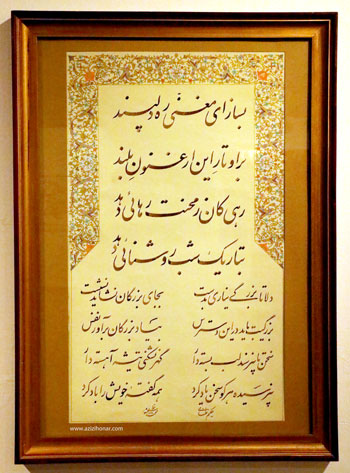 بساز ای مغنی ره دلپسند
بر اوتار این ارغنون بلند
رهی کان ز محنت رهائی دهد
بتاریک شب روشنائی دهد
دلا تا بزرگی نیاری بدست بجای بزرگان نشاید نشست
بزرگیت باید درین دسترس بیاد بزرگان برآور نفس
سخن تا نپرسند لب بسته دار گهر نشکنی تیشه آهسته دار
نپرسیده هر کو سخن یاد کرد همه گفته خویش را باد کرد
www.azizihonar.com